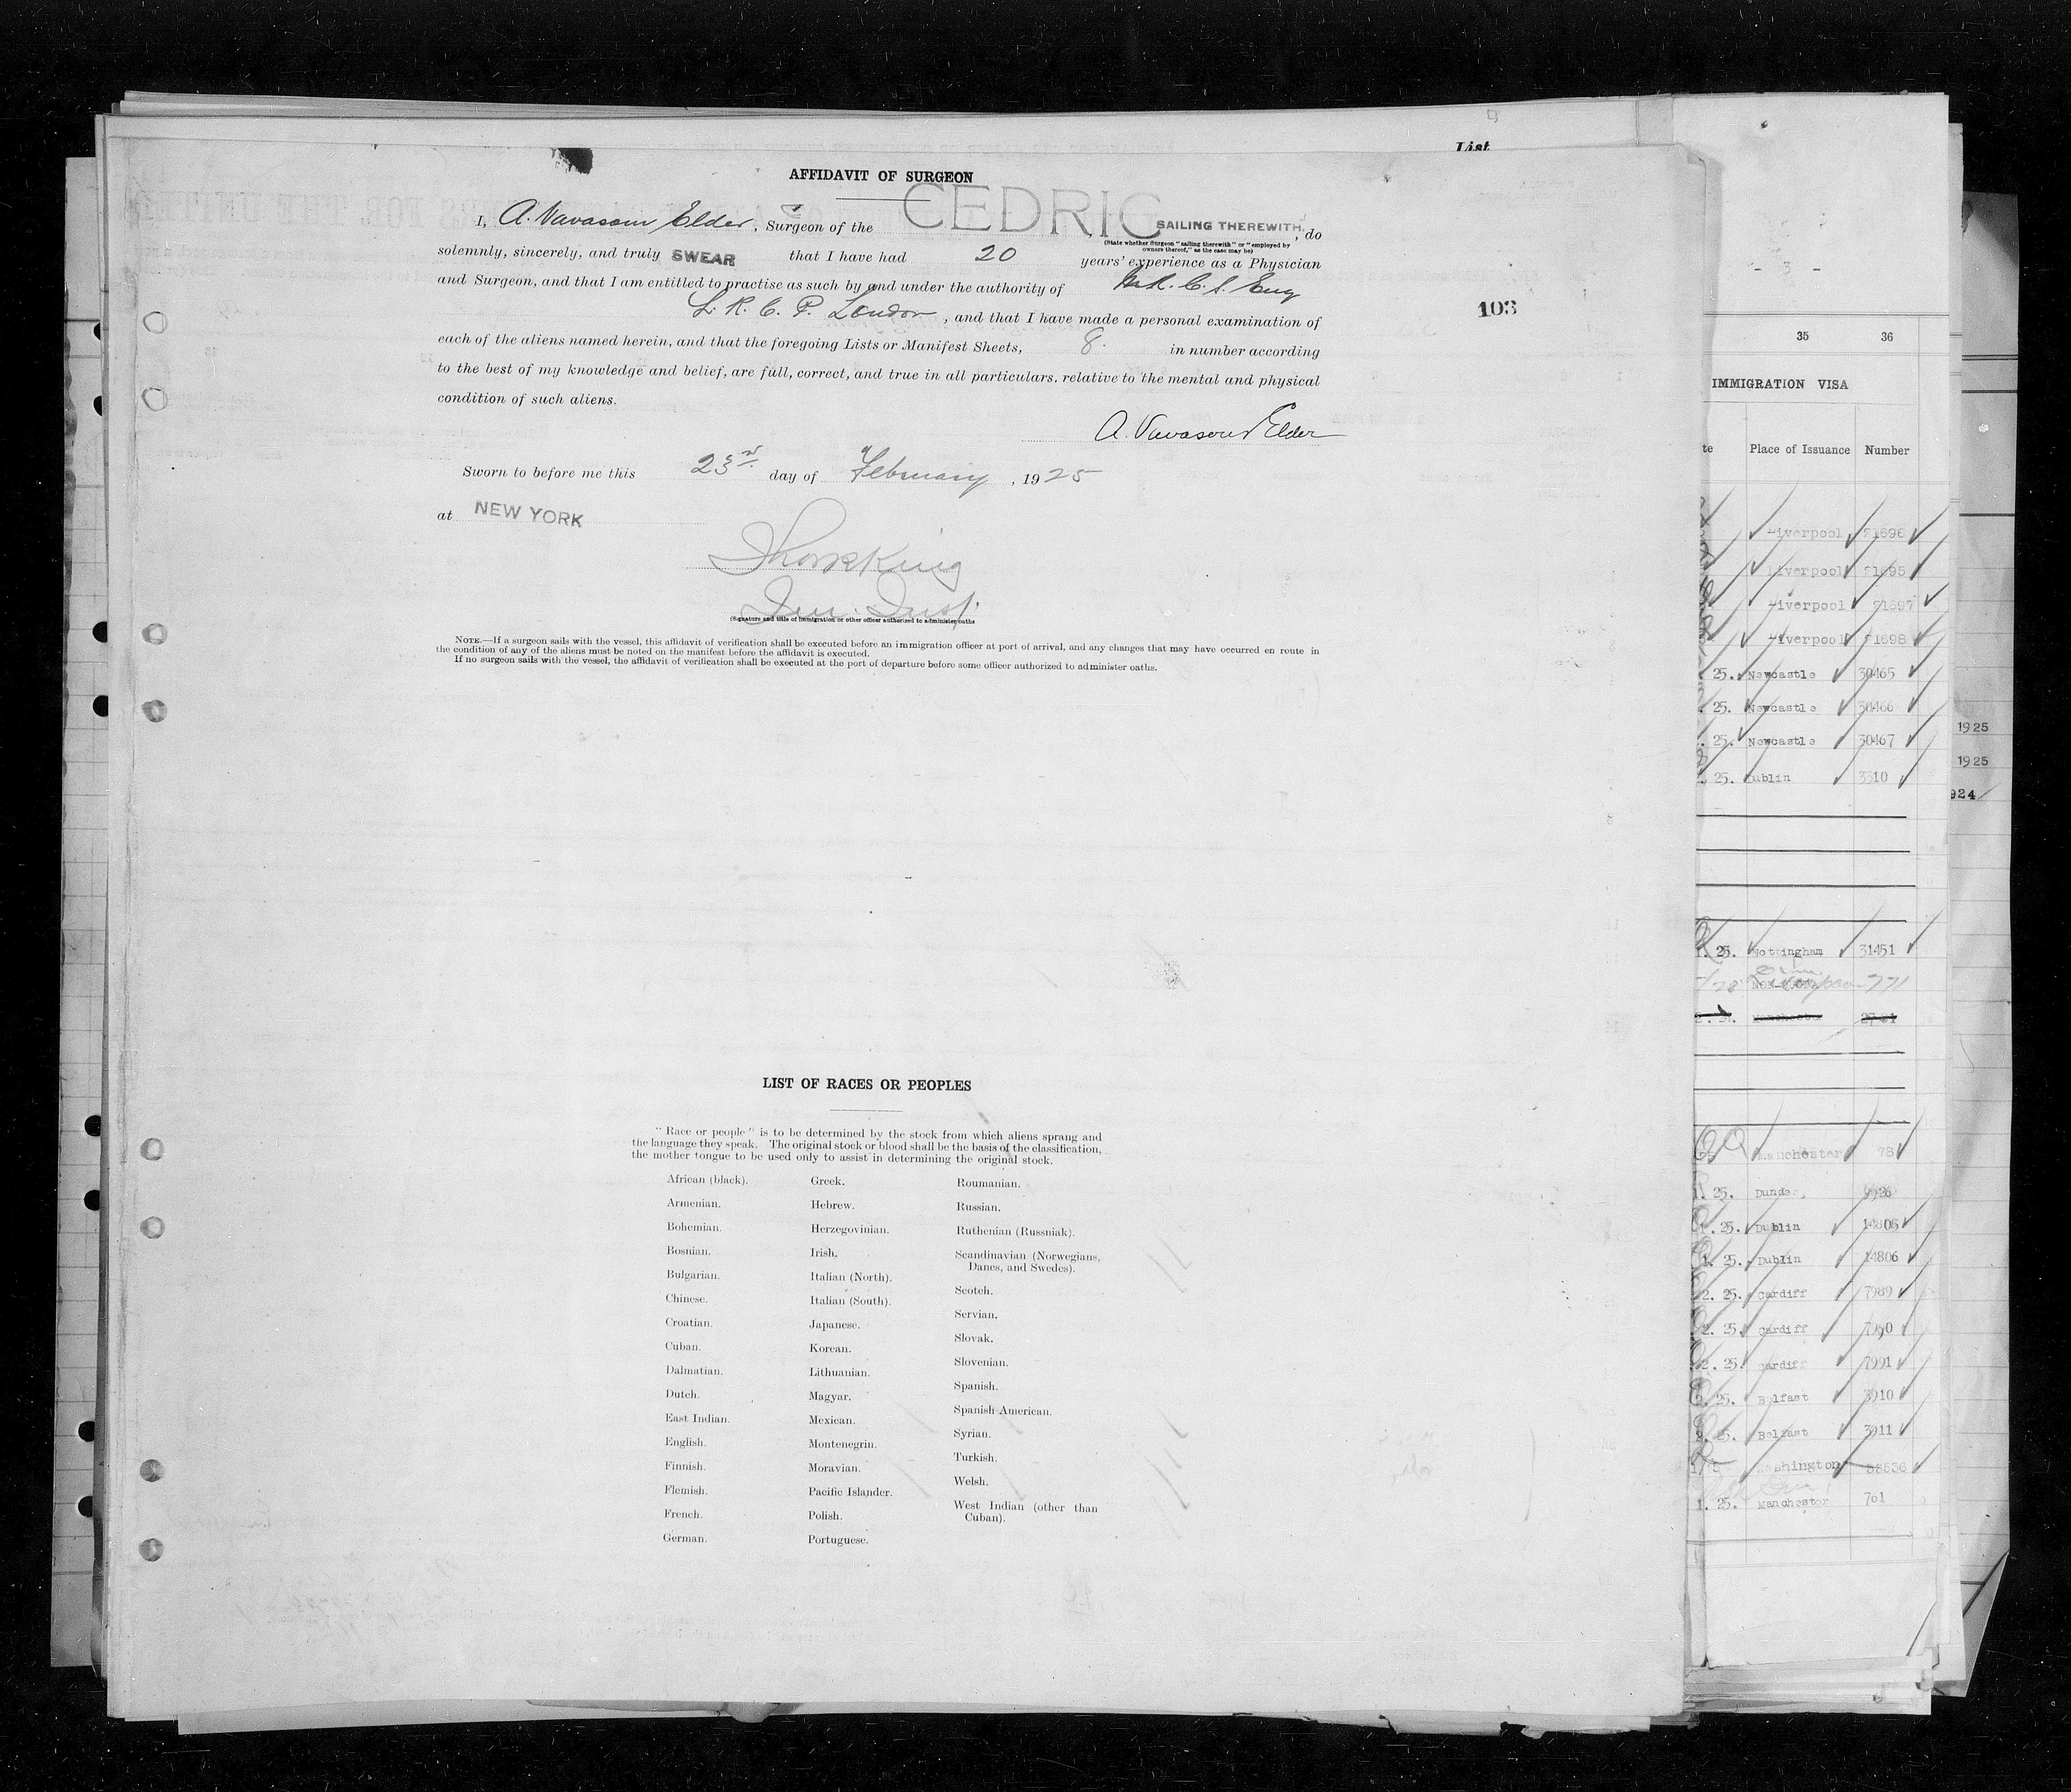 List
AFFIDAVIT OF SURGEON
I, A. Vavasour Elder, Surgeon of the CEDRIC, SAILING THEREWITH, do
(State whether Surgeon "sailing therewith" or "employed by
owners thereof," as the case may be)
solemnly, sincerely, and truly SWEAR that I have had 20 years' experience as a Physician
and Surgeon, and that I am entitled to practise as such by and under the authority of M.R.C.S. Eng
L. R. C. P. London, and that I have made a personal examination of
103
each of the aliens named herein, and that the foregoing Lists or Manifest Sheets, 8. in number according
to the best of my knowledge and belief, are full, correct, and true in all particulars, relative to the mental and physical
condition of such aliens.
A. Vavasour Elder
Sworn to before me this 23rd day of February, 1925
at NEW YORK
King
Imm. Insp.
(Signature and title of immigration or other officer authorized to administer oaths
NOTE.—If a surgeon sails with the vessel, this affidavit of verification shall be executed before an immigration officer at port of arrival, and any changes that may have occurred en route in
the condition of any of the aliens must be noted on the manifest before the affidavit is executed.
If no surgeon sails with the vessel, the affidavit of verification shall be executed at the port of departure before some officer authorized to administer oaths.
LIST OF RACES OR PEOPLES
"Race or people" is to be determined by the stock from which aliens sprang and
the language they speak. The original stock or blood shall be the basis of the classification,
the mother tongue to be used only to assist in determining the original stock.
African (black).
Armenian.
Bohemian.
Bosnian.
Bulgarian.
Chinese.
Croatian.
Cuban.
Dalmatian.
Dutch.
East Indian.
English.
Finnish.
Flemish.
French.
German.
Greek.
Hebrew.
Herzegovinian.
Irish.
Italian (North).
Italian (South).
Japanese.
Korean.
Lithuanian.
Magyar.
Mexican.
Montenegrin.
Moravian.
Pacific Islander.
Polish.
Portuguese.
Roumanian.
Russian.
Ruthenian (Russniak).
Scandinavian (Norwegians,
Danes, and Swedes).
Scotch.
Servian.
Slovak.
Slovenian.
Spanish.
Spanish American.
Syrian.
Turkish.
Welsh.
West Indian (other than
Cuban).
- 3 -
35 36
IMMIGRATION VISA
te Place of Issuance Number
Liverpool 21696
Liverpool 21695
Liverpool 21697
Liverpool 21698
25. Newcastle 30465
25. Newcastle 30466
25. Newcastle 30467
25. Dublin 3510
1. 25. Nottingham 31451
Manchester 78
1. 25. Dundee,
1. 25. Dublin 14805
1. 25. Dublin 14806
2. 25. Cardiff 7989
2. 25. Cardiff 7990
2. 25. Cardiff 7991
2. 25. Belfast 3910
2. 25. Belfast 3911
Washington
1. 25. Manchester 701
1925
1925
924